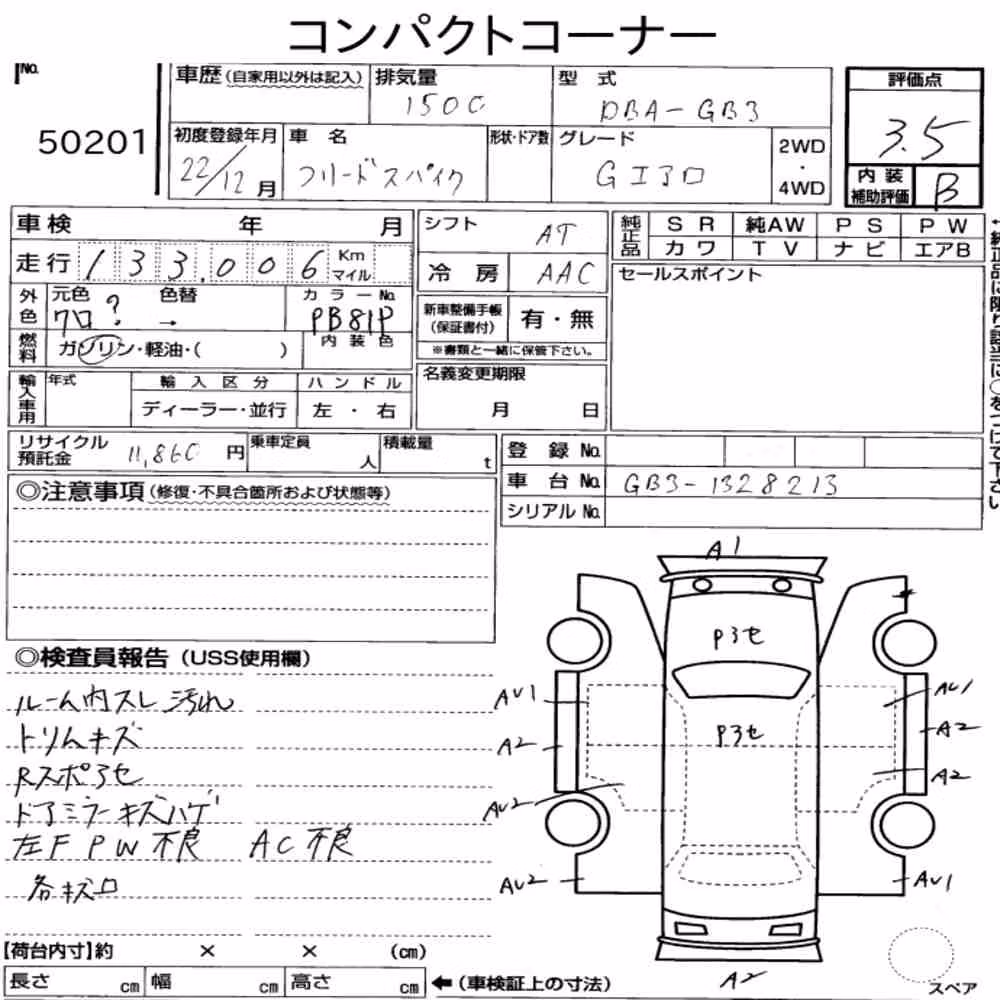 コンパクトコーナー
No.
50201
車歴 (自家用以外は記入)
排気量
1500
型 式
DBA-GB3
評価点
3.5
初度登録年月
22/12月
車 名
フリードスパイク
形状・ドア数
グレード
Gエアロ
2WD
・
4WD
内 装
補助評価
B
車検 年 月
走行 133,006 Km
マイル
外色
元色 色替
クロ? →
カラーNo.
PB81P
燃料
ガソリン・軽油・( )
内装色
シフト
AT
冷 房
AAC
新車整備手帳
(保証書付)
有・無
※書類と一緒に保管下さい。
純正品
SR 純AW PS PW
カワ TV ナビ エアB
セールスポイント
←純正品に限り該当に○をつけて下さい
輸入車用
年式
輸入区分
ディーラー・並行
ハンドル
左 ・ 右
名義変更期限
月 日
リサイクル
預託金
11,860 円
乗車定員
人
積載量
t
登 録 No.
車 台 No.
GB3-1328213
シリアル No.
◎注意事項 (修復・不具合箇所および状態等)
◎検査員報告 (USS使用欄)
ルーム内スレ 汚れ
トリムキズ
Rスポアセ
ドアミラーキズハゲ
左F PW不良 AC不良
各キズロ
A1
P3セ
P3セ
AU1
A2
AU2
AU2
AU1
A2
A2
AU1
A2
スペア
【荷台内寸】約 × × (cm)
長さ cm 幅 cm 高さ cm ←(車検証上の寸法)